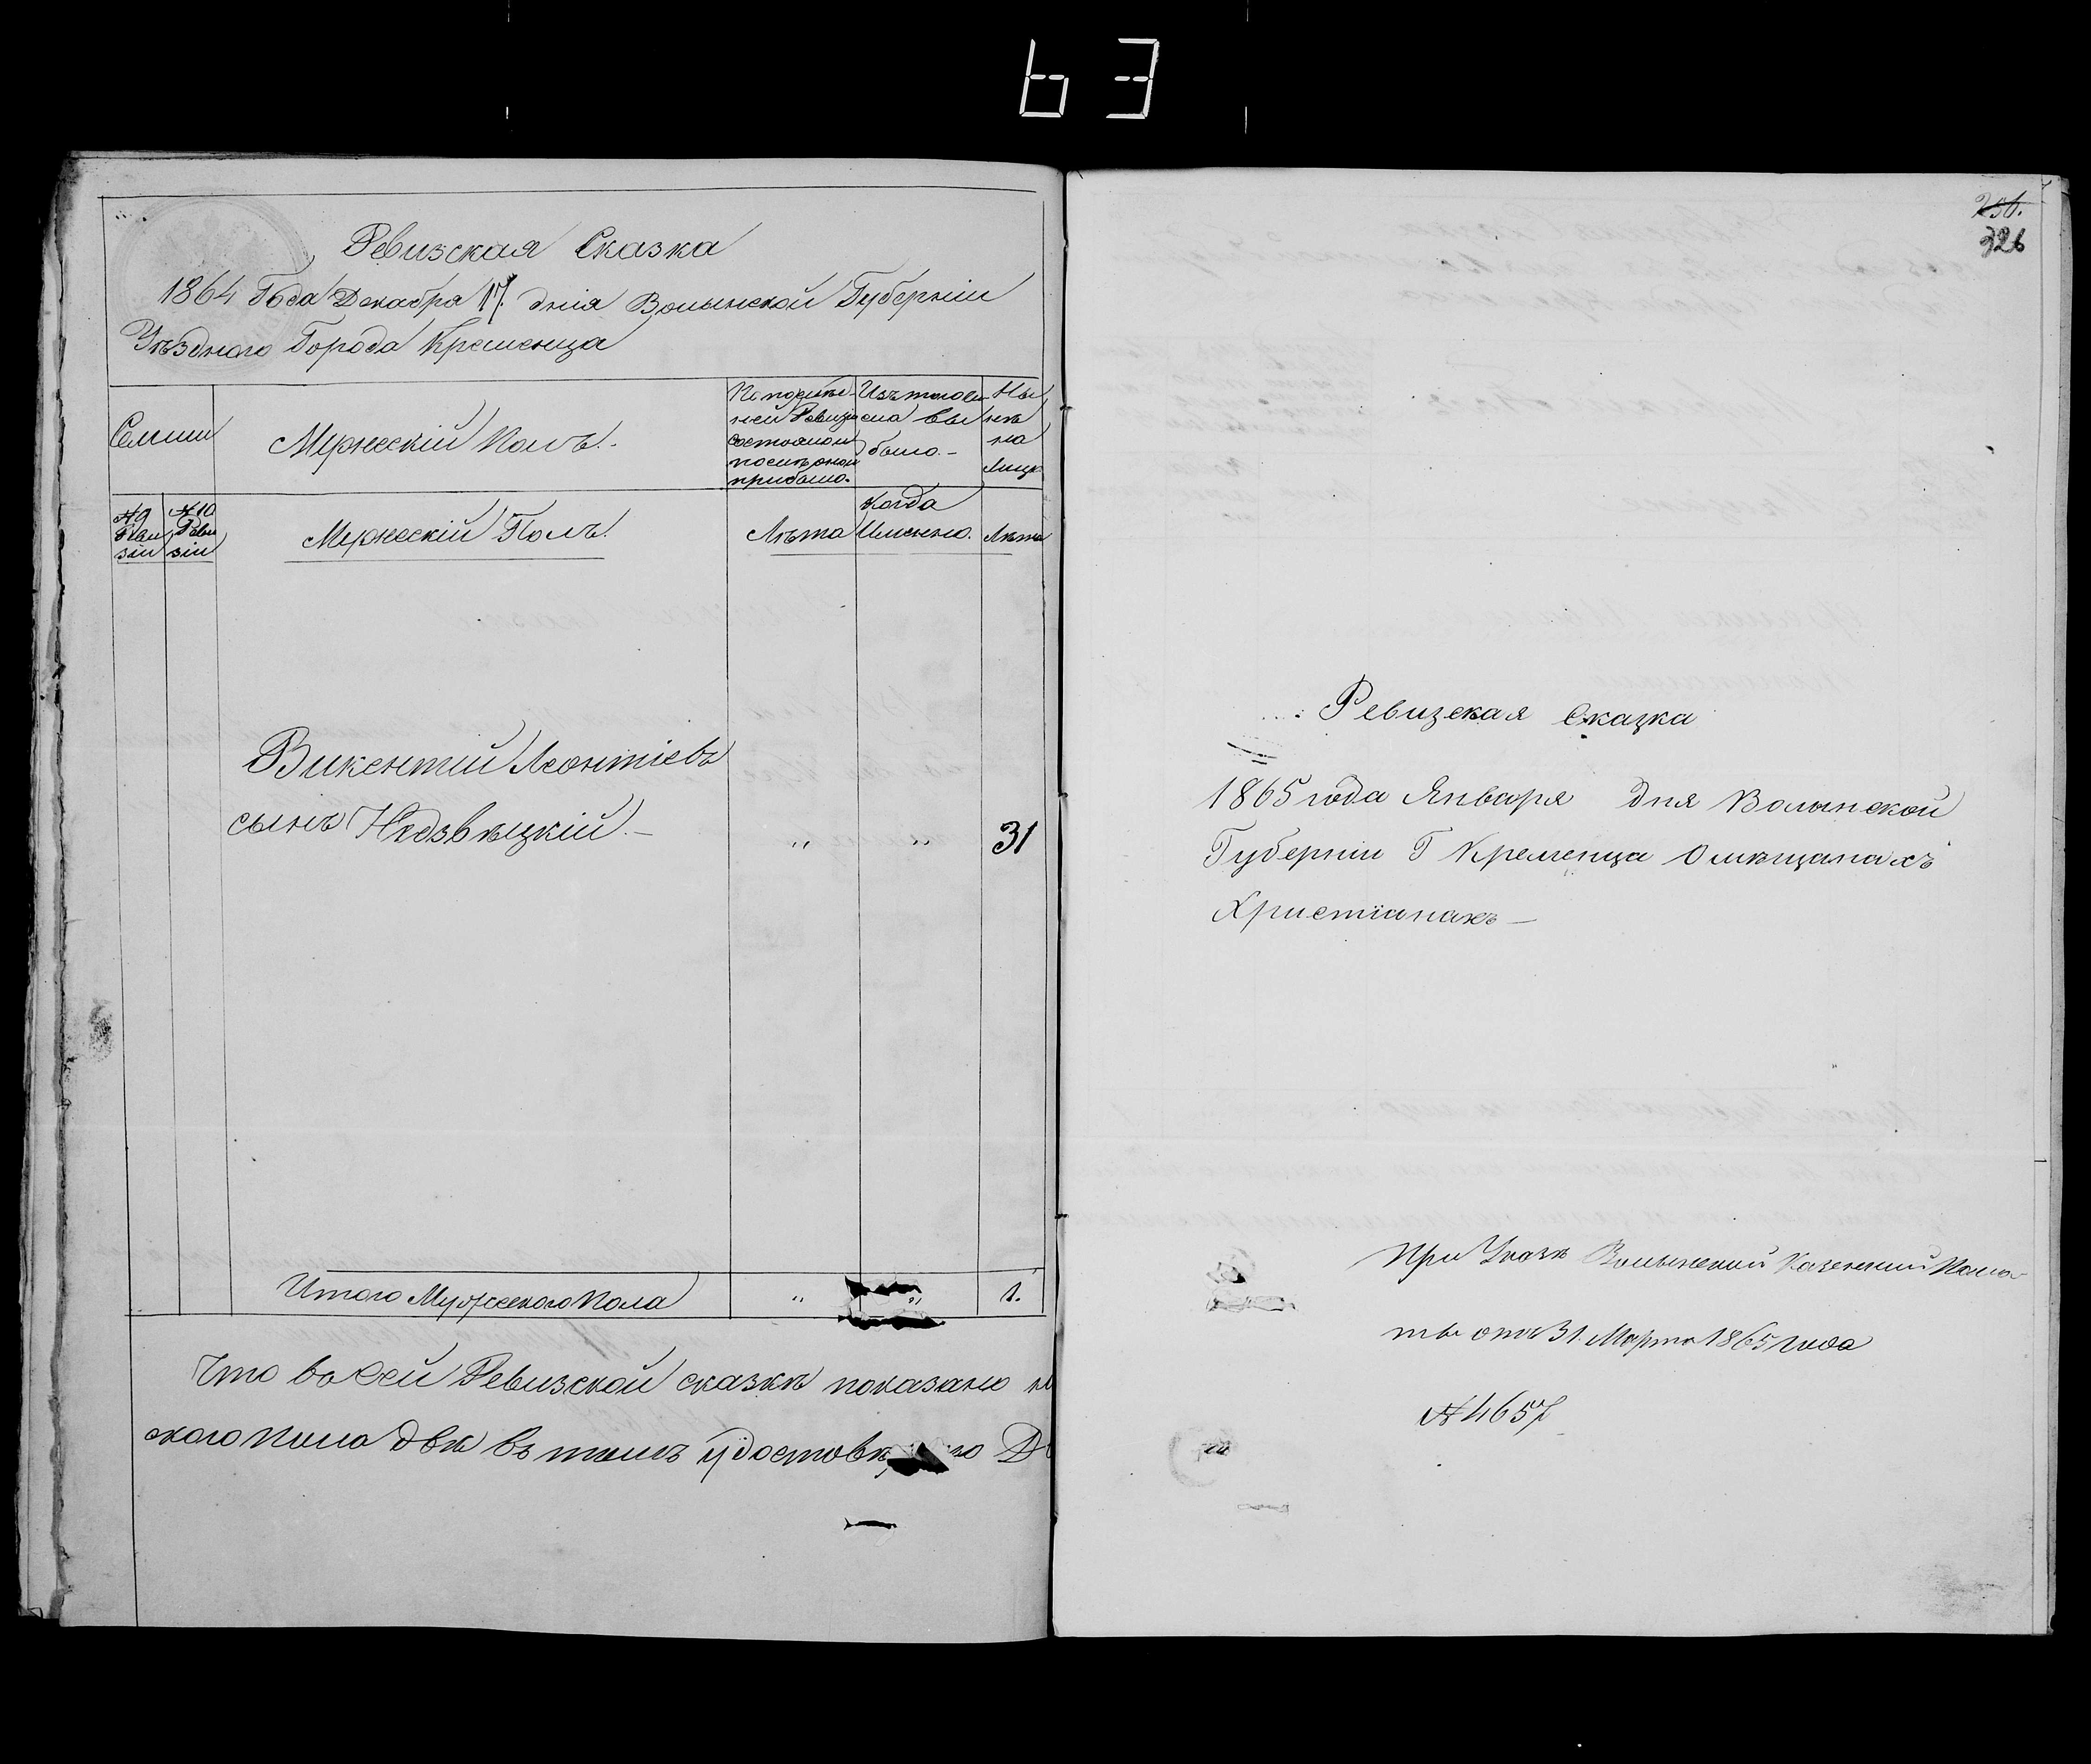 63
Ревизская Сказка
1864 Года Декабря 17. дня Волынской Губерніи
Уѣзднаго Города Кременца
Семьи
Мужескій Полъ.
По послѣд-
ней Ревизіи
состояло и
послѣ оной
прибыло.
Изъ того чи
сла вы
было.-
Ны
нѣ
на
Лицо
№9
Реви
зіи
№10
Реви
зіи
Мужескій Полъ.
Лѣта
Когда
Именно.
Лѣта
Викентій Леонтіевъ
сынъ Недзвѣцкій.- " " 31
Итого Мужескаго Пола " " 1.
Что во сей Ревизской сказкѣ показано
ского пола двѣ въ томъ удостовѣ
256.
326
Ревизская Сказка
1865 года Января дня Волынской
Губерніи Г Кременца О мѣщанахъ
Христіанахъ —
При Указѣ Волынской Казенной Пала-
ты отъ 31. Марта 1865 года
№ 4657